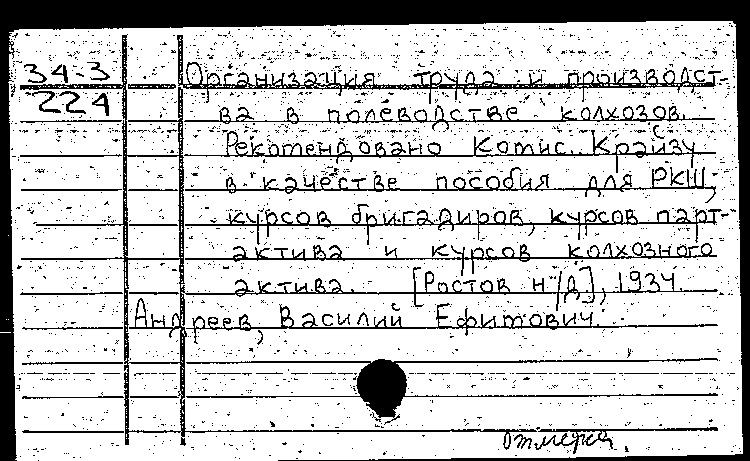 34-3
224
Организация труда и производст-
ва в полеводстве колхозов.
Рекомендовано Комис. Крайзу
в качестве пособия для РКШ,
курсов бригадиров, курсов парт-
актива и курсов колхозного
актива. [Ростов н/д], 1934.
Андреев, Василий Ефимович.